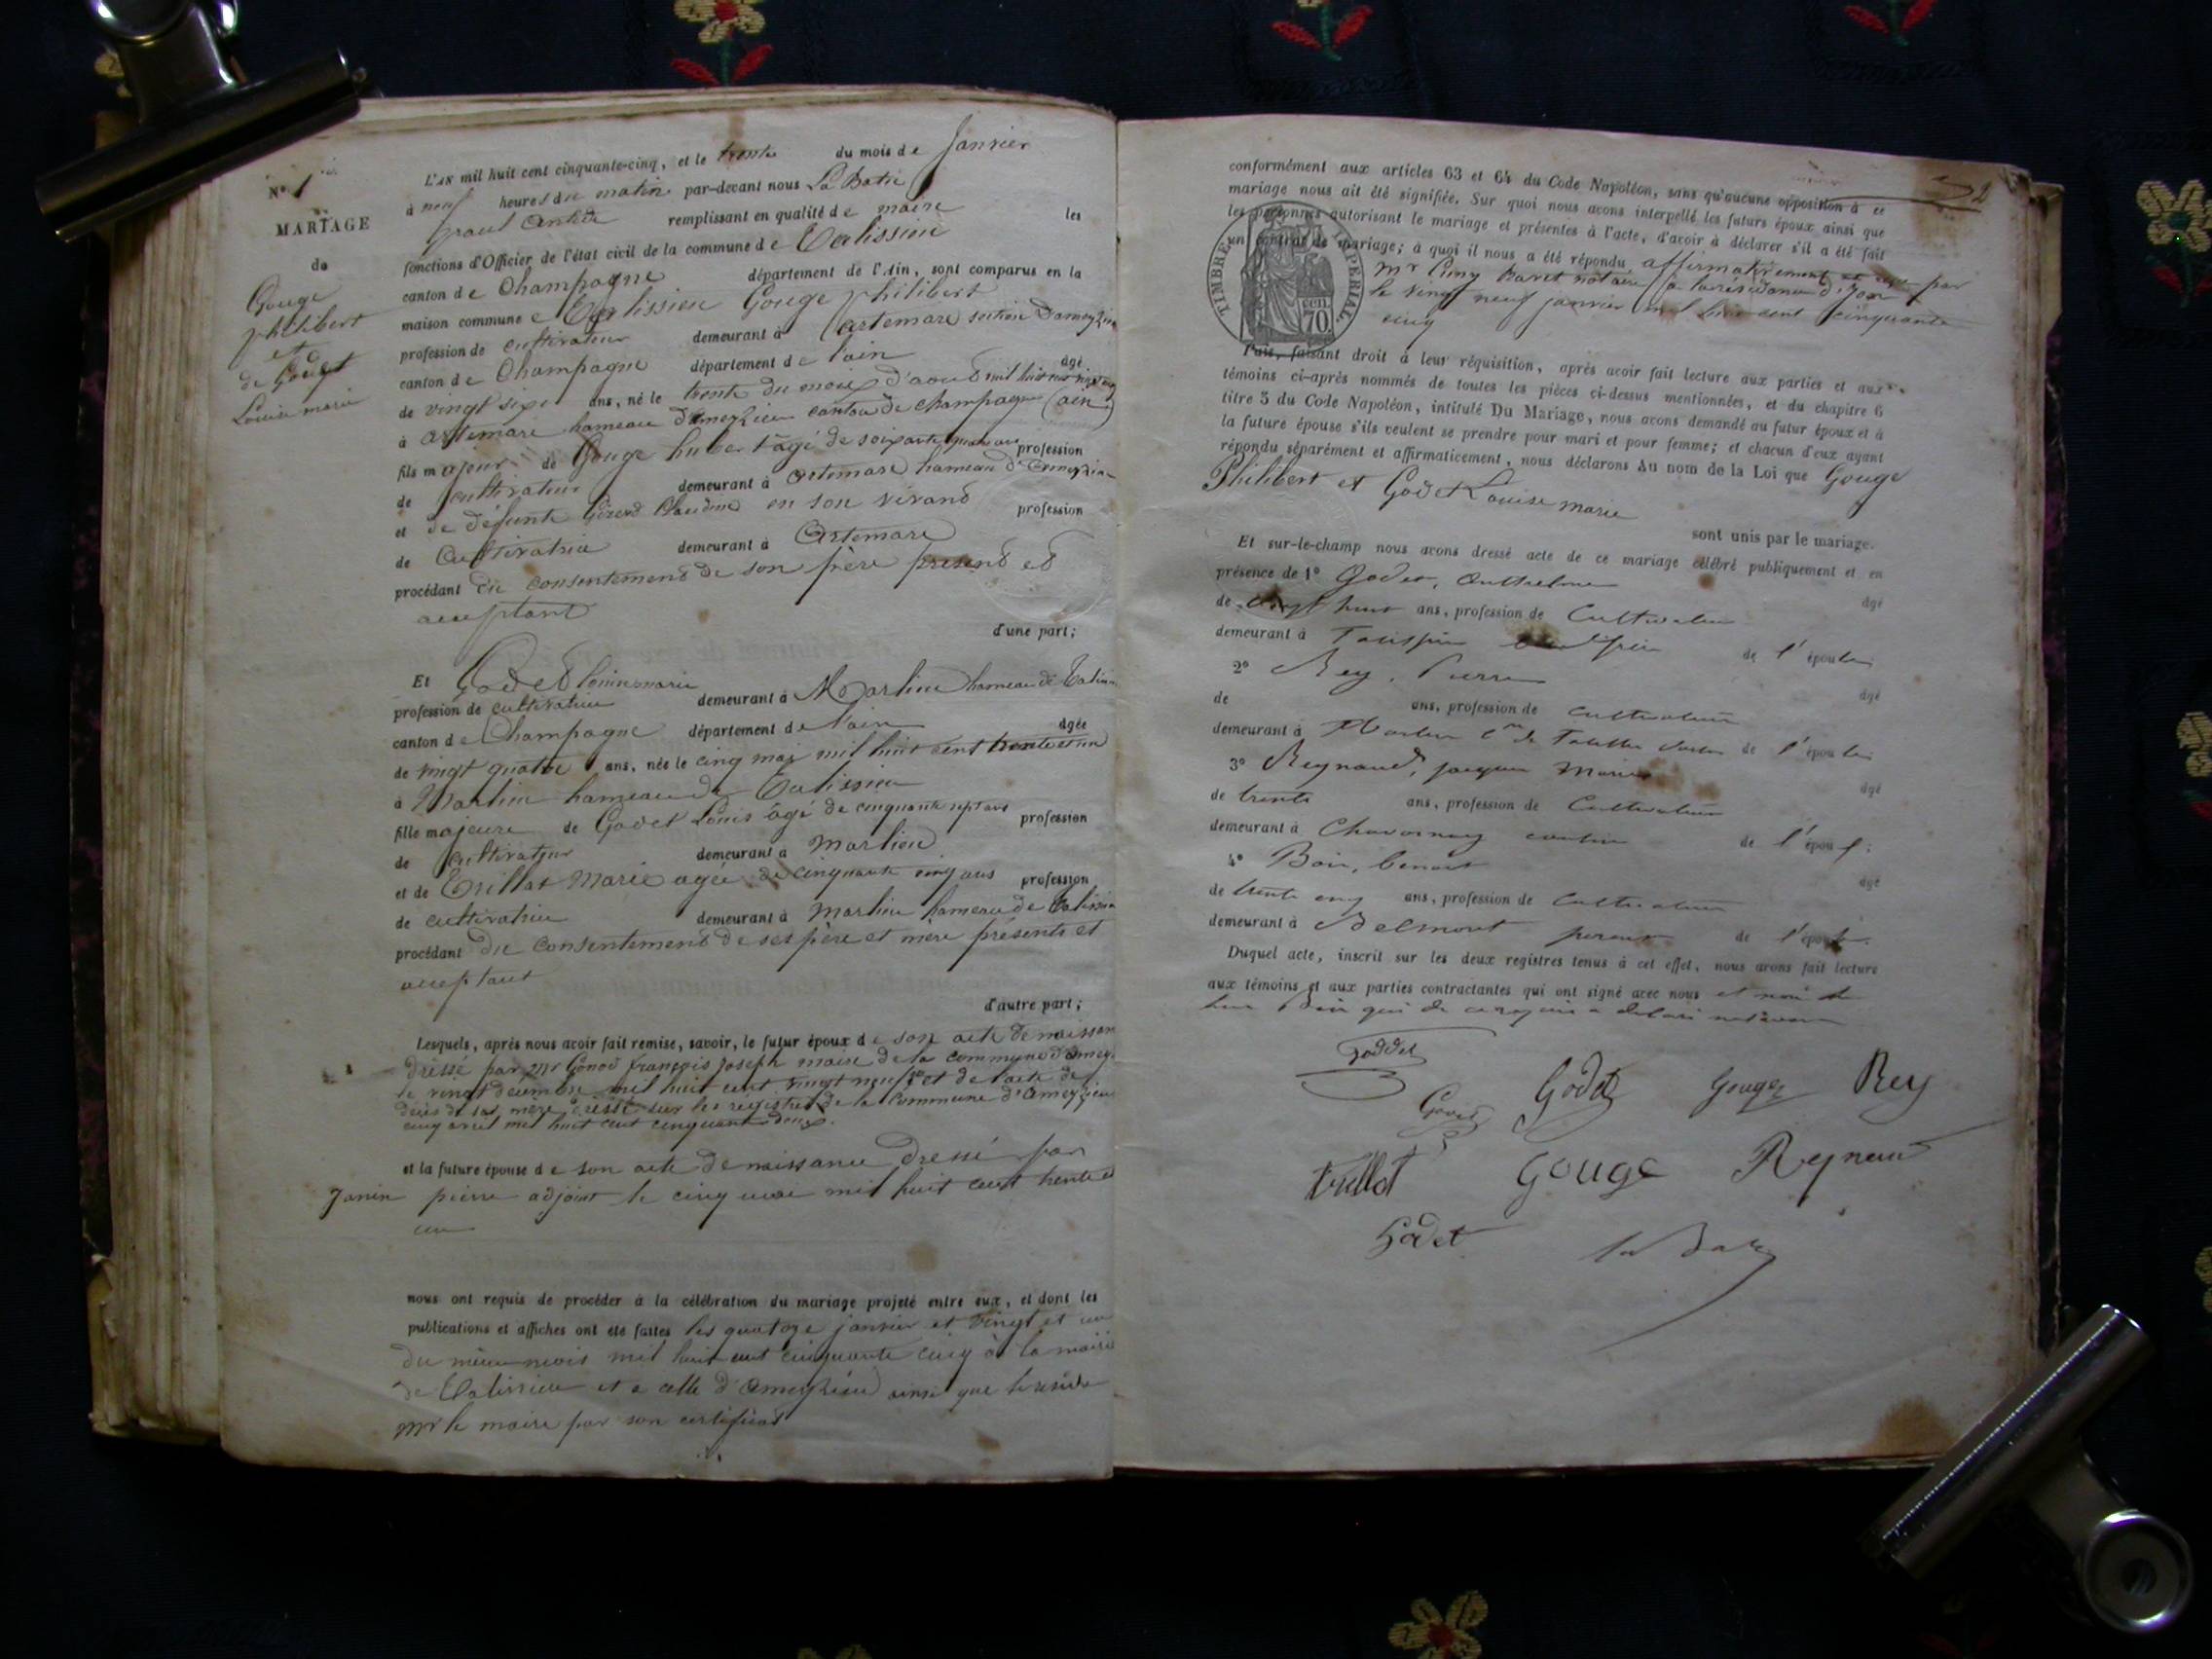 N° 1
MARIAGE
de
Gouge
philibert
et
de Godet
Louise marie
L'AN mil huit cent cinquante-cinq, et le trente du mois de Janvier
à neuf heures du matin par-devant nous La Batie
paul remplissant en qualité de maire les
fonctions d'Officier de l'état civil de la commune de Talissieu
canton de Champagne département de l'Ain, sont comparus en la
maison commune Talissieu Gouge philibert
profession de cultivateur demeurant à Artemare section d'ameyzieu
canton de Champagne département de l'ain âgé
de vingt ans, né le trente du mois d'aout mil huit cent
à Artemare hameau d'ameyzieu canton de champagne (ain)
fils majeur de Gouge hubert âgé de soixante quatre ans profession
de cultivateur demeurant à artemare hameau d'ameyzieu
et de défunte Claudine en son vivant profession
de Cultivatrice demeurant à Artemare
procédant du consentement de son père présent et
acceptant
d'une part;
Et Godet Louise marie
profession de cultivatrice demeurant à Marlieu hameau de Talissieu
canton de Champagne département de l'ain âgée
de vingt quatre ans, née le cinq mai mil huit cent trente et un
à Marlieu hameau de Talissieu
fille majeure de Godet Louis âgé de cinquante sept ans profession
de cultivateur demeurant à Marlieu
et de Trillat Marie agée de cinquante cinq ans profession
de cultivatrice demeurant à Marlieu hameau de Talissieu
procédant du consentement de ses père et mère présents et
acceptant
d'autre part;
Lesquels, après nous avoir fait remise, savoir, le futur époux de son acte de naissance
dressé par mr Gonod françois Joseph maire de la commune d'ameyzieu
le vingt mil huit cent vingt neuf et de l'acte de
décès de sa mère dressé sur les registres de la commune d'ameyzieu
cinq avril mil huit cent cinquante deux.
et la future épouse de son acte de naissance dressé par
Janin pierre adjoint le cinq mai mil huit cent trente et
un
nous ont requis de procéder à la célébration du mariage projeté entre eux, et dont les
publications et affiches ont été faites les quatorze janvier et vingt et un
du même mois mil huit cent cinquante cinq à la mairie
de Talissieu et a celle d'ameyzieu ainsi que
mr le maire par son certificat
2
conformément aux articles 63 et 64 du Code Napoléon, sans qu'aucune opposition à ce
mariage nous ait été signifiée. Sur quoi nous avons interpellé les futurs époux ainsi que
les personnes autorisant le mariage et présentes à l'acte, d'avoir à déclarer s'il a été fait
un contrat de mariage; à quoi il nous a été répondu affirmativement par
TIMBRE IMPERIAL
70 cen.
mr notaire à la residence d'
le vingt neuf janvier mil huit cent cinquante
cinq
Puis, faisant droit à leur réquisition, après avoir fait lecture aux parties et aux
témoins ci-après nommés de toutes les pièces ci-dessus mentionnées, et du chapitre 6
titre 5 du Code Napoléon, intitulé Du Mariage, nous avons demandé au futur époux et à
la future épouse s'ils veulent se prendre pour mari et pour femme; et chacun d'eux ayant
répondu séparément et affirmativement, nous déclarons au nom de la Loi que Gouge
Philibert et Godet Louise marie
sont unis par le mariage.
Et sur-le-champ nous avons dressé acte de ce mariage célébré publiquement et en
présence de 1° Godet, Anthelme âgé
de vingt huit ans, profession de Cultivateur
demeurant à Talissieu de l'épouse
2° Rey, Pierre âgé
de ans, profession de Cultivateur
demeurant à Marlieu de l'épouse
3° Reynaud, jacques Marie âgé
de trente ans, profession de Cultivateur
demeurant à Chavornay cousin de l'époux;
4° Boin, benoit âgé
de trente cinq ans, profession de Cultivateur
demeurant à Belmont de l'époux.
Duquel acte, inscrit sur les deux registres tenus à cet effet, nous avons fait lecture
aux témoins et aux parties contractantes qui ont signé avec nous et non
Boin qui de ce requis a déclaré
Goddet
Godet Godet Gouge Rey
Trillat Gouge Reynaud
Godet